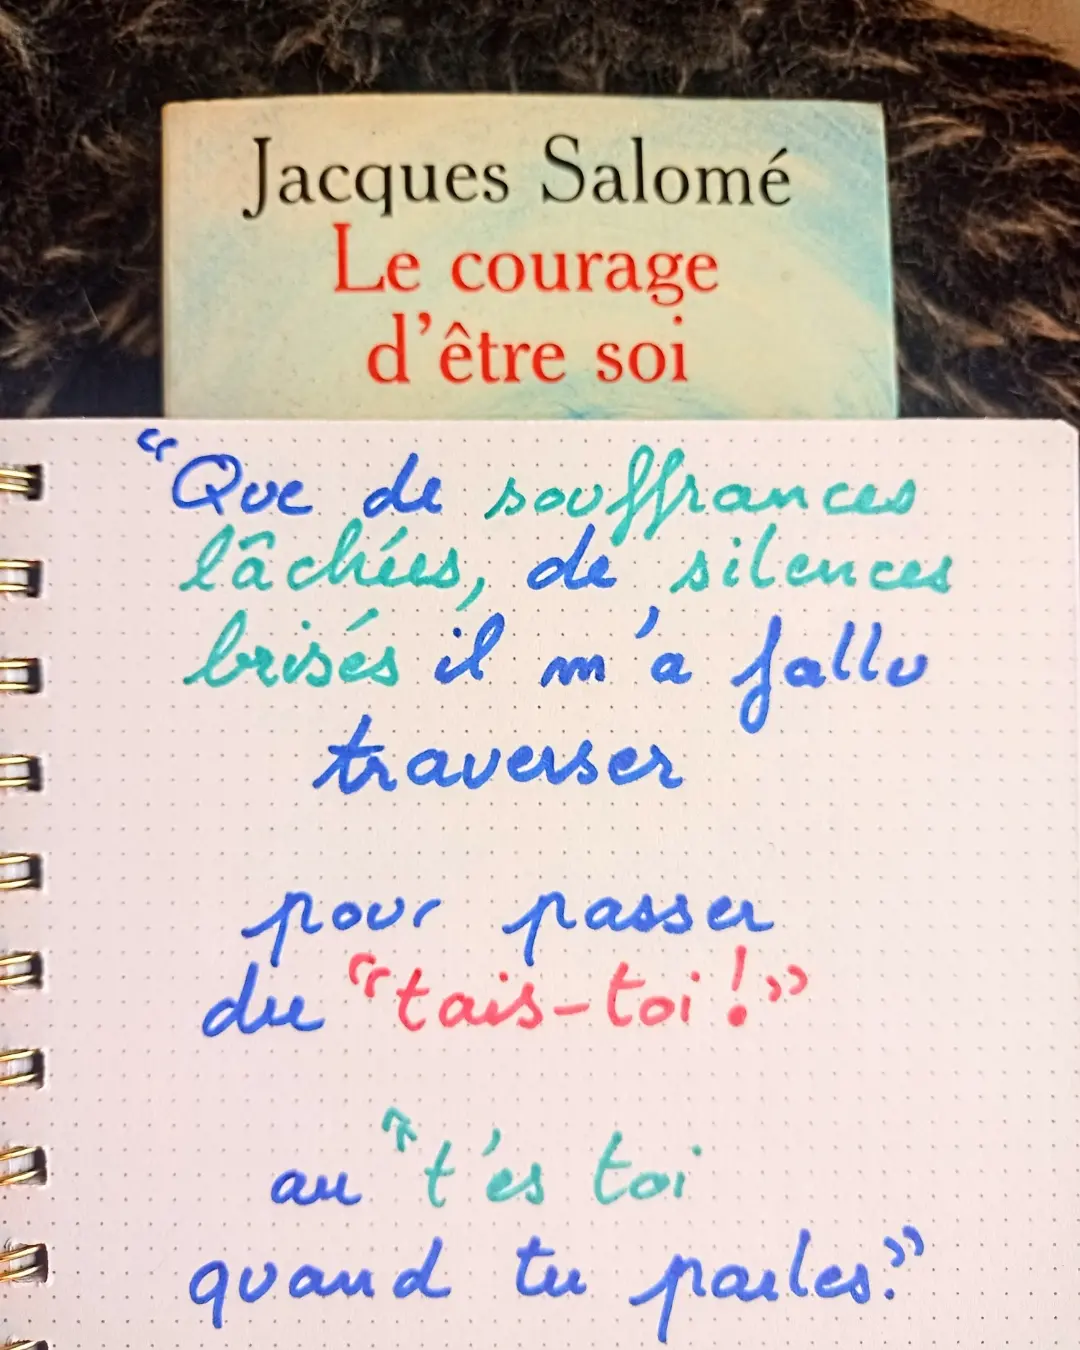 Jacques Salomé
Le courage
d'être soi
“Que de souffrances
lâchées, de silences
brisés il m'a fallu
traverser
pour passer
du “tais-toi !”
au “t'es toi
quand tu parles.”